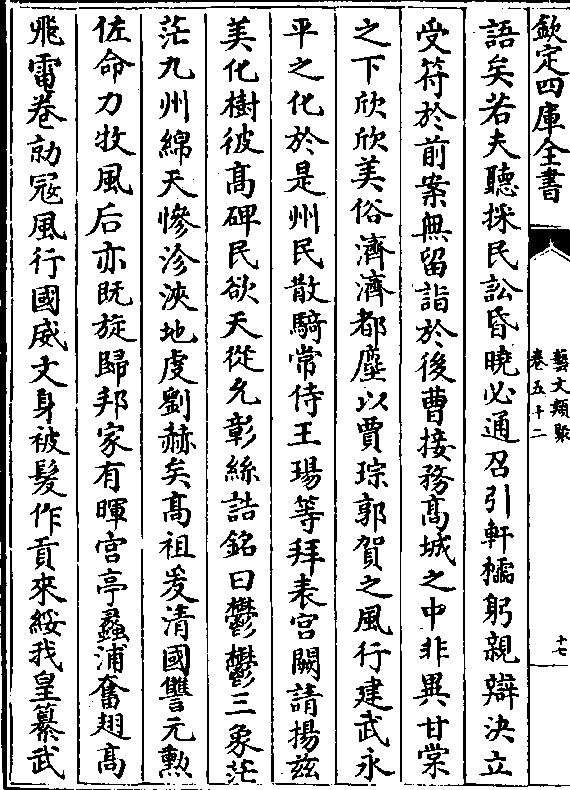 欽定四庫全書
藝文類聚
卷五十二
十七
語矣若夫聽採民訟昏曉必通召引軒櫺躬親辯決立
受符於前案無留詣於後曹接務髙城之中非異甘棠
之下欣欣美俗濟濟都塵以賈琮郭賀之風行建武永
平之化於是州民散騎常侍王瑒等拜表宫闕請揚兹
美化樹彼髙碑民欲天從允彰絲誥銘曰鬱鬱三象茫
茫九州綿天慘沴浹地虔劉赫矣髙祖爰清國讐元勲
佐命力牧風后亦既旋歸邦家有暉宫亭蠡浦奮翅髙
飛雷卷勍冦風行國威文身被髮作貢來綏我皇纂武